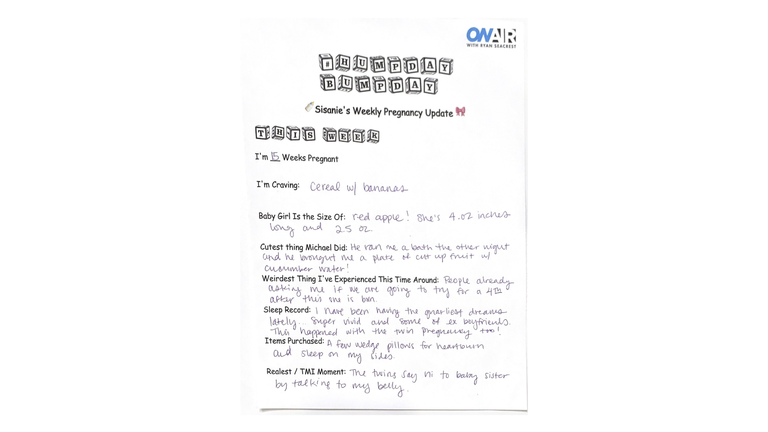 ON AIR
WITH RYAN SEACREST
#HUMPDAY
BUMPDAY
Sisanie's Weekly Pregnancy Update
THIS WEEK
I'm 15 Weeks Pregnant
I'm Craving: Cereal w/ bananas
Baby Girl Is the Size Of: red apple! She's 4.02 inches
long and 2.5 oz
Cutest thing Michael Did: He ran me a bath the other night
and he brought me a plate of cut up fruit w/
cucumber water!
Weirdest Thing I've Experienced This Time Around: People already
asking me if we are going to try for a 4th
after this one is born.
Sleep Record: I have been having the gnarliest dreams
lately... Super vivid and some of ex boyfriends.
This happened with the twin pregnancy too!
Items Purchased: A few wedge pillows for heartburn
and sleep on my sides.
Realest / TMI Moment: The twins say hi to baby sister
by talking to my belly.